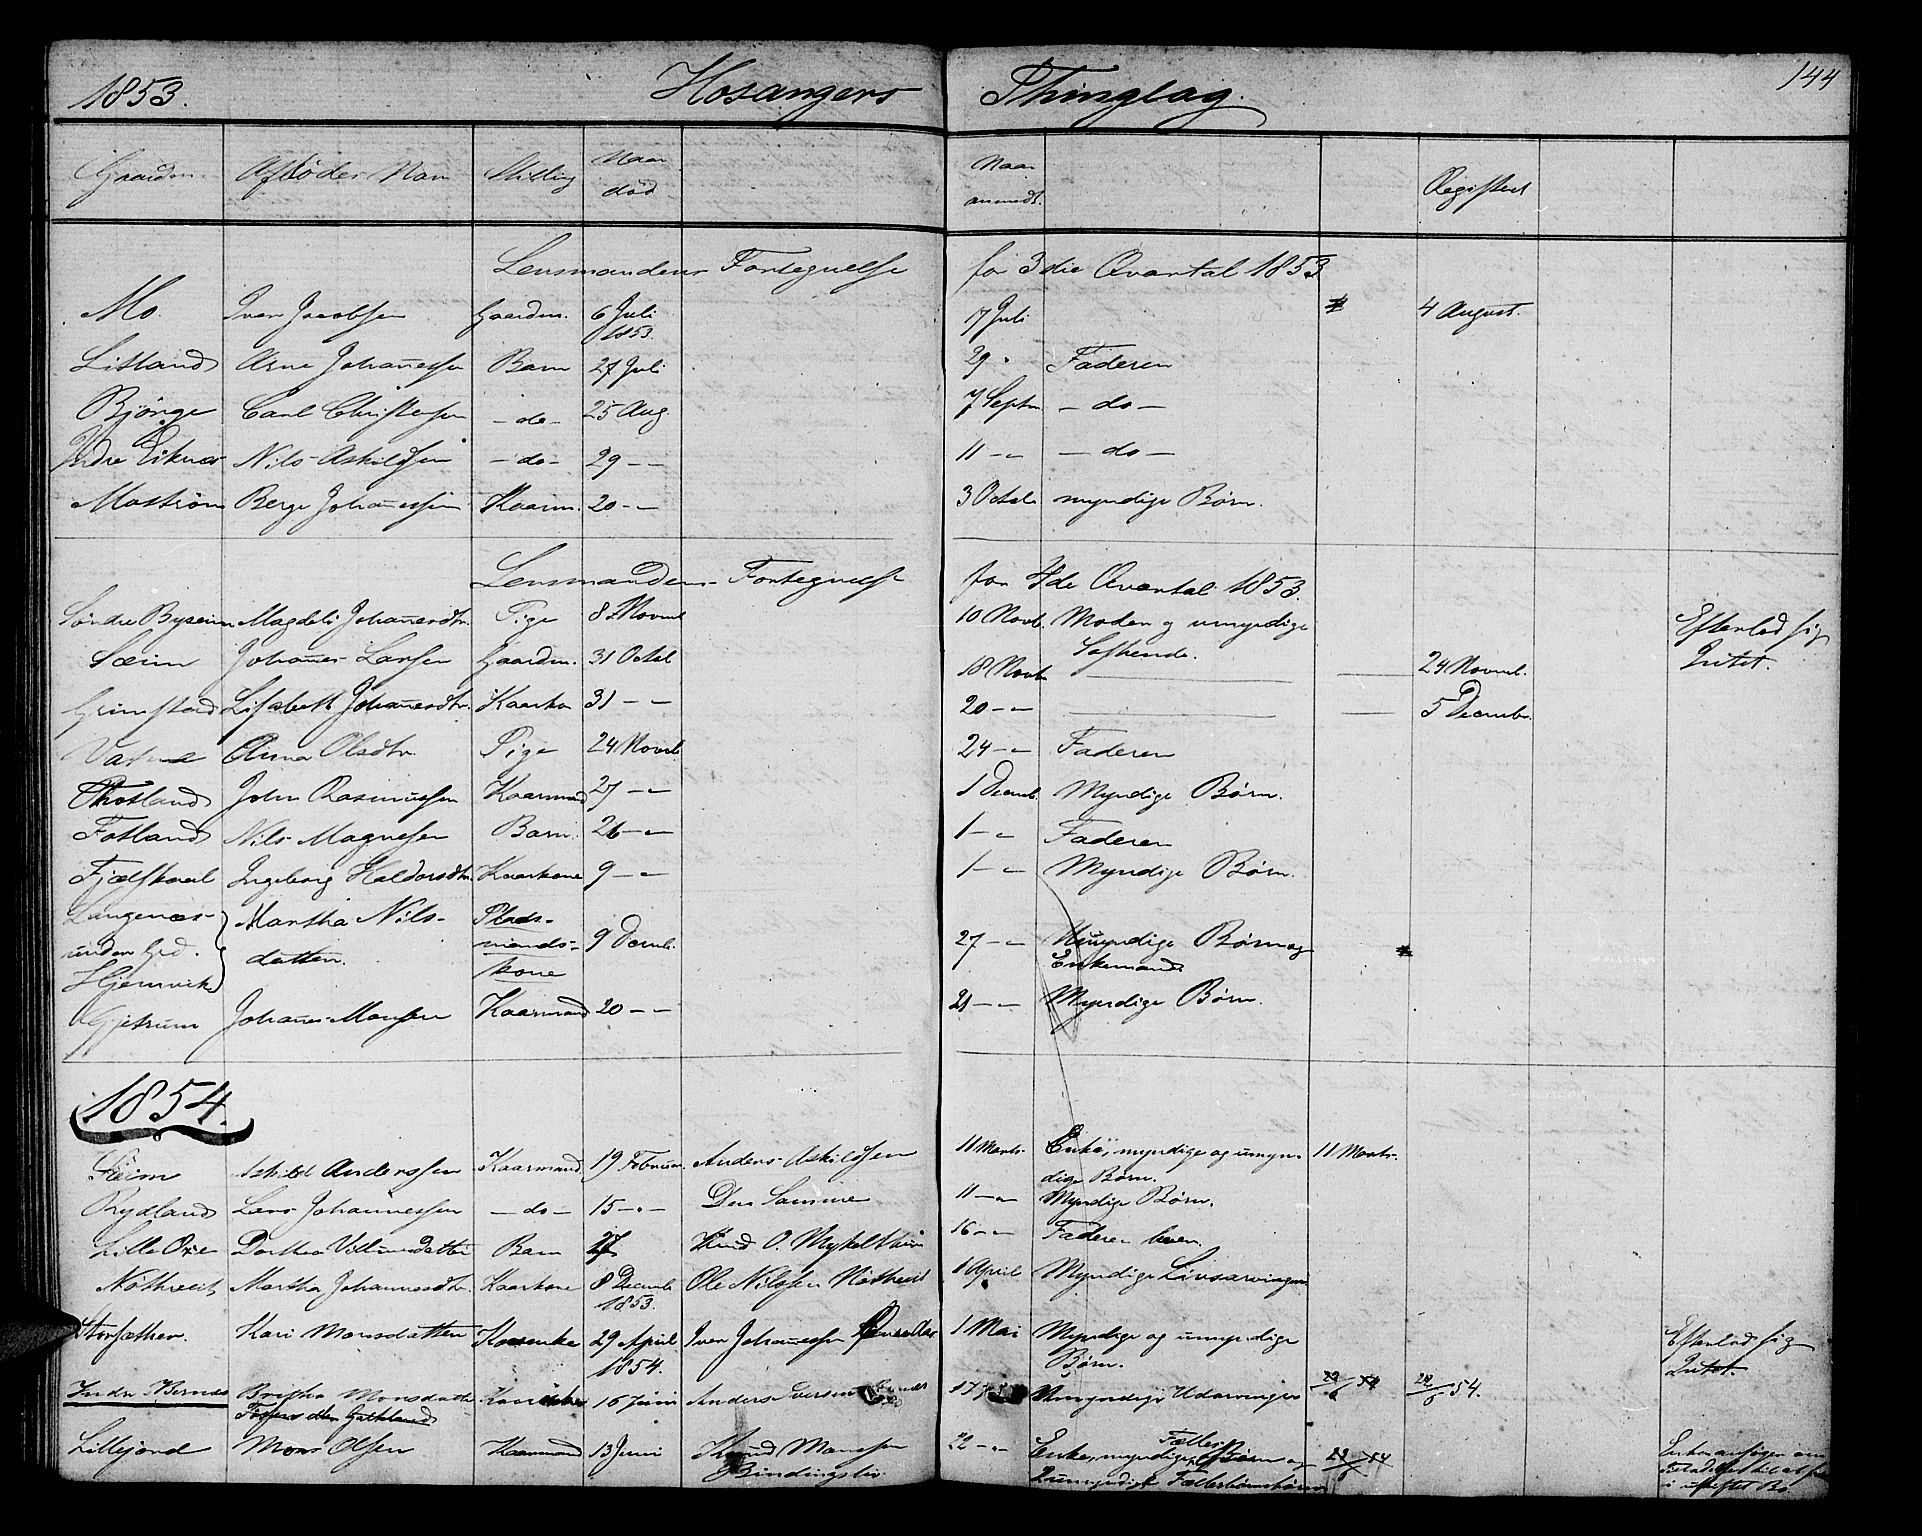 1853. Hosangers Thinglag. 144
Gaarden Afdødes Navn Stilling Naar død Naar anmeldt. Registeret
Lensmandens Fortegnelse for 3die Qvartal 1853
Mo. Iver Jacobsen Gaardm. 6 Juli 1853. 7 Juli 4 August.
Litland Arne Johannessen Barn 27 Juli 29 " Faderen
Bjørge Carl Christensen - do - 25 Aug. 7 Septr - do -
Indre Eiknes Nils Askildsen - do - 29 - - 11 - " - do -
Mostrøm Berge Johannessen Kaarm. 20 - - 3 Octob myndige Børn.
Lensmandens Fortegnelse for 4de Qvartal 1853.
Søndre Byseim Magdeli Johannesdtr. Pige 8 Novmb 10 Novb. Moder og umyndige Søskende. Efterlod sig Intet.
Sæim Johannes Larsen Gaardm. 31 Octob 18 Novb 24 Novmb.
Grimstad Lisbeth Johannesdtr. Kaarko 31 - - 20 - " 5 Decmbr.
Vatne Anna Olsdtr. Pige 24 Novmb 24 - " Faderen
Fotland John Rasmussen Kaarmand 27 - " 1 Decmb. Myndige Børn.
Fotland Nils Magnesen Barn. 26 - " 1 - " Faderen
Fjelskaal Ingeborg Haldorsdtr. Kaarkone 9 - " 1 - " Myndige Børn.
Langenæs under Grd. Hjemvik Martha Nilsdatter. Pladsmandskone 9 Decmb. 27 - " Umyndige Børn og Enkemand
Gjetrum Johannes Monsen Kaarmand 20 - - 21 - " Myndige Børn.
1854.
Seim Askild Anderssen Kaarmand 19 Februar. Anders Askildsen 11 Marts. Enke, myndige og umyndige Børn. 11 Marts.
Rydland Lars Johannessen - do - 15 - " - Den Samme 11 - " Myndige Børn.
Lille Oxe Dorthea Villumsdatter Barn 27 Knud O. Mykelthun 16 - " Faderen
Nøthveit Martha Johannesdtr. Kaarkone 8 Decmb 1853. Ole Nilssen Nøthveit 1 April Myndige Livsarvinger
Storsæther. Kari Monsdatter Kaarenke 29 April 1854. Iver Johannessen 1 Mai Myndige og umyndige Børn. Efterlod sig Intet.
Indre Bernes Britha Monsdatter 16 Juni Anders 17 Umyndige Udarvinger 54.
Lillejord Mons Olsen Kaarmand 13 Juni Knud Monssen 22 - " Enke, myndige Fælles Børn og 2 umyndige